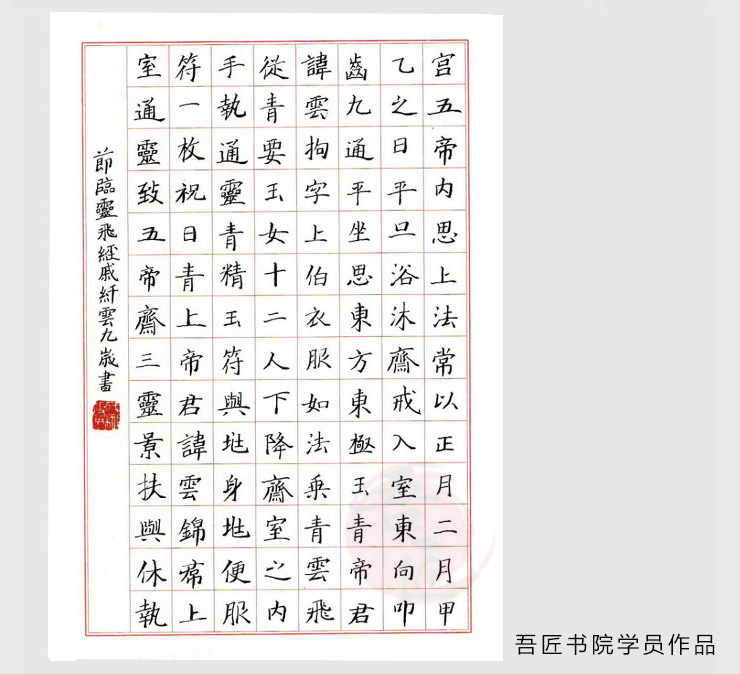 宫五帝内思上法常以正月二月甲
乙之日平旦浴沐齋戒入室東向叩
齒九通平坐思東方東極玉青帝君
諱雲拘字上伯衣服如法乘青雲飛
從青要玉女十二人下降齋室之内
手執通靈青精玉符與兆身兆便服
符一枚祝曰青上帝君諱雲錦席上
室通靈致五帝齋三靈景扶與休執
節臨靈飛經戚纤雲九歲書
吾匠书院学员作品